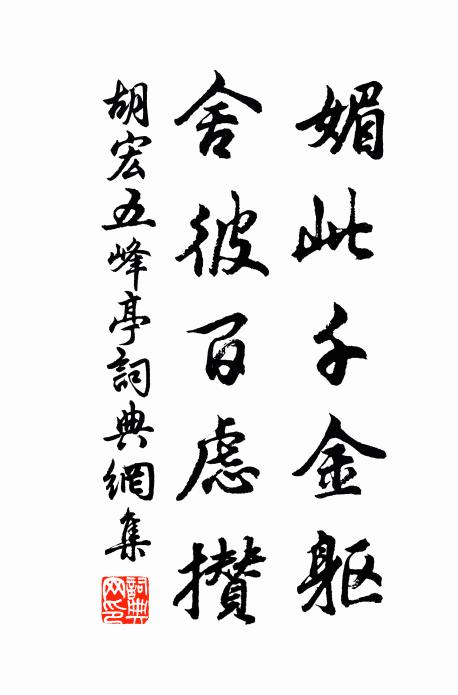 媚此千金軀
舍彼百慮攢
胡宏五峰亭詞典網集
詞典網印